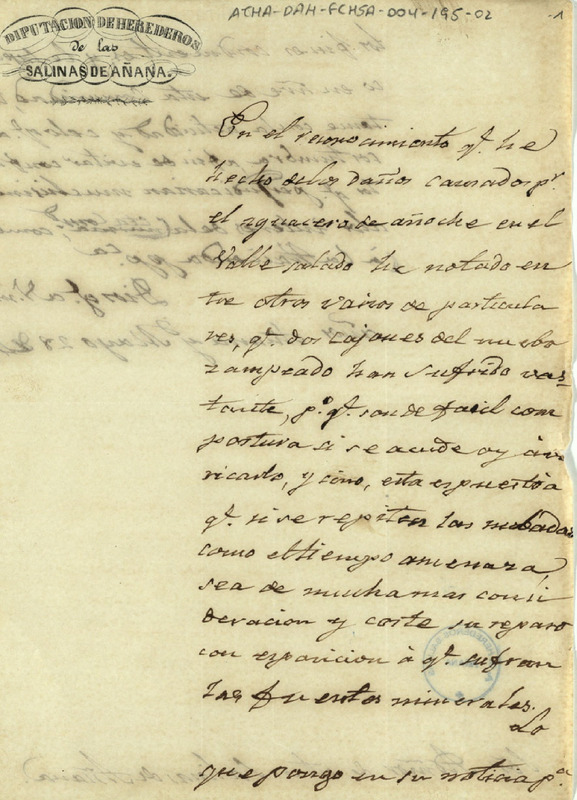 ATHA-DAH-FCHSA-004-195-02
1
DIPUTACION DE HEREDEROS
de las
SALINAS DE AÑANA.
En el reconocimiento qᵉ. he
hecho de los daños causados pʳ.
el aguacero de añoche en el
Valle salado he notado en
tre otros varios de particula
res, qᵉ. dos cajones del nuebo
zampeado han sufrido vas
tante, pº. qᵉ. son de facil com
postura si se acude oy á
ricarlo, y sino, esta espuesto á
qᵉ. si se repiten las nubadas
como el tiempo amenaza,
sea de mucha mas consi
deracion y coste su reparo
con esposicion á qᵉ. sufran
las fuentes minerales.
Lo
que pongo en su noticia pᵃ.